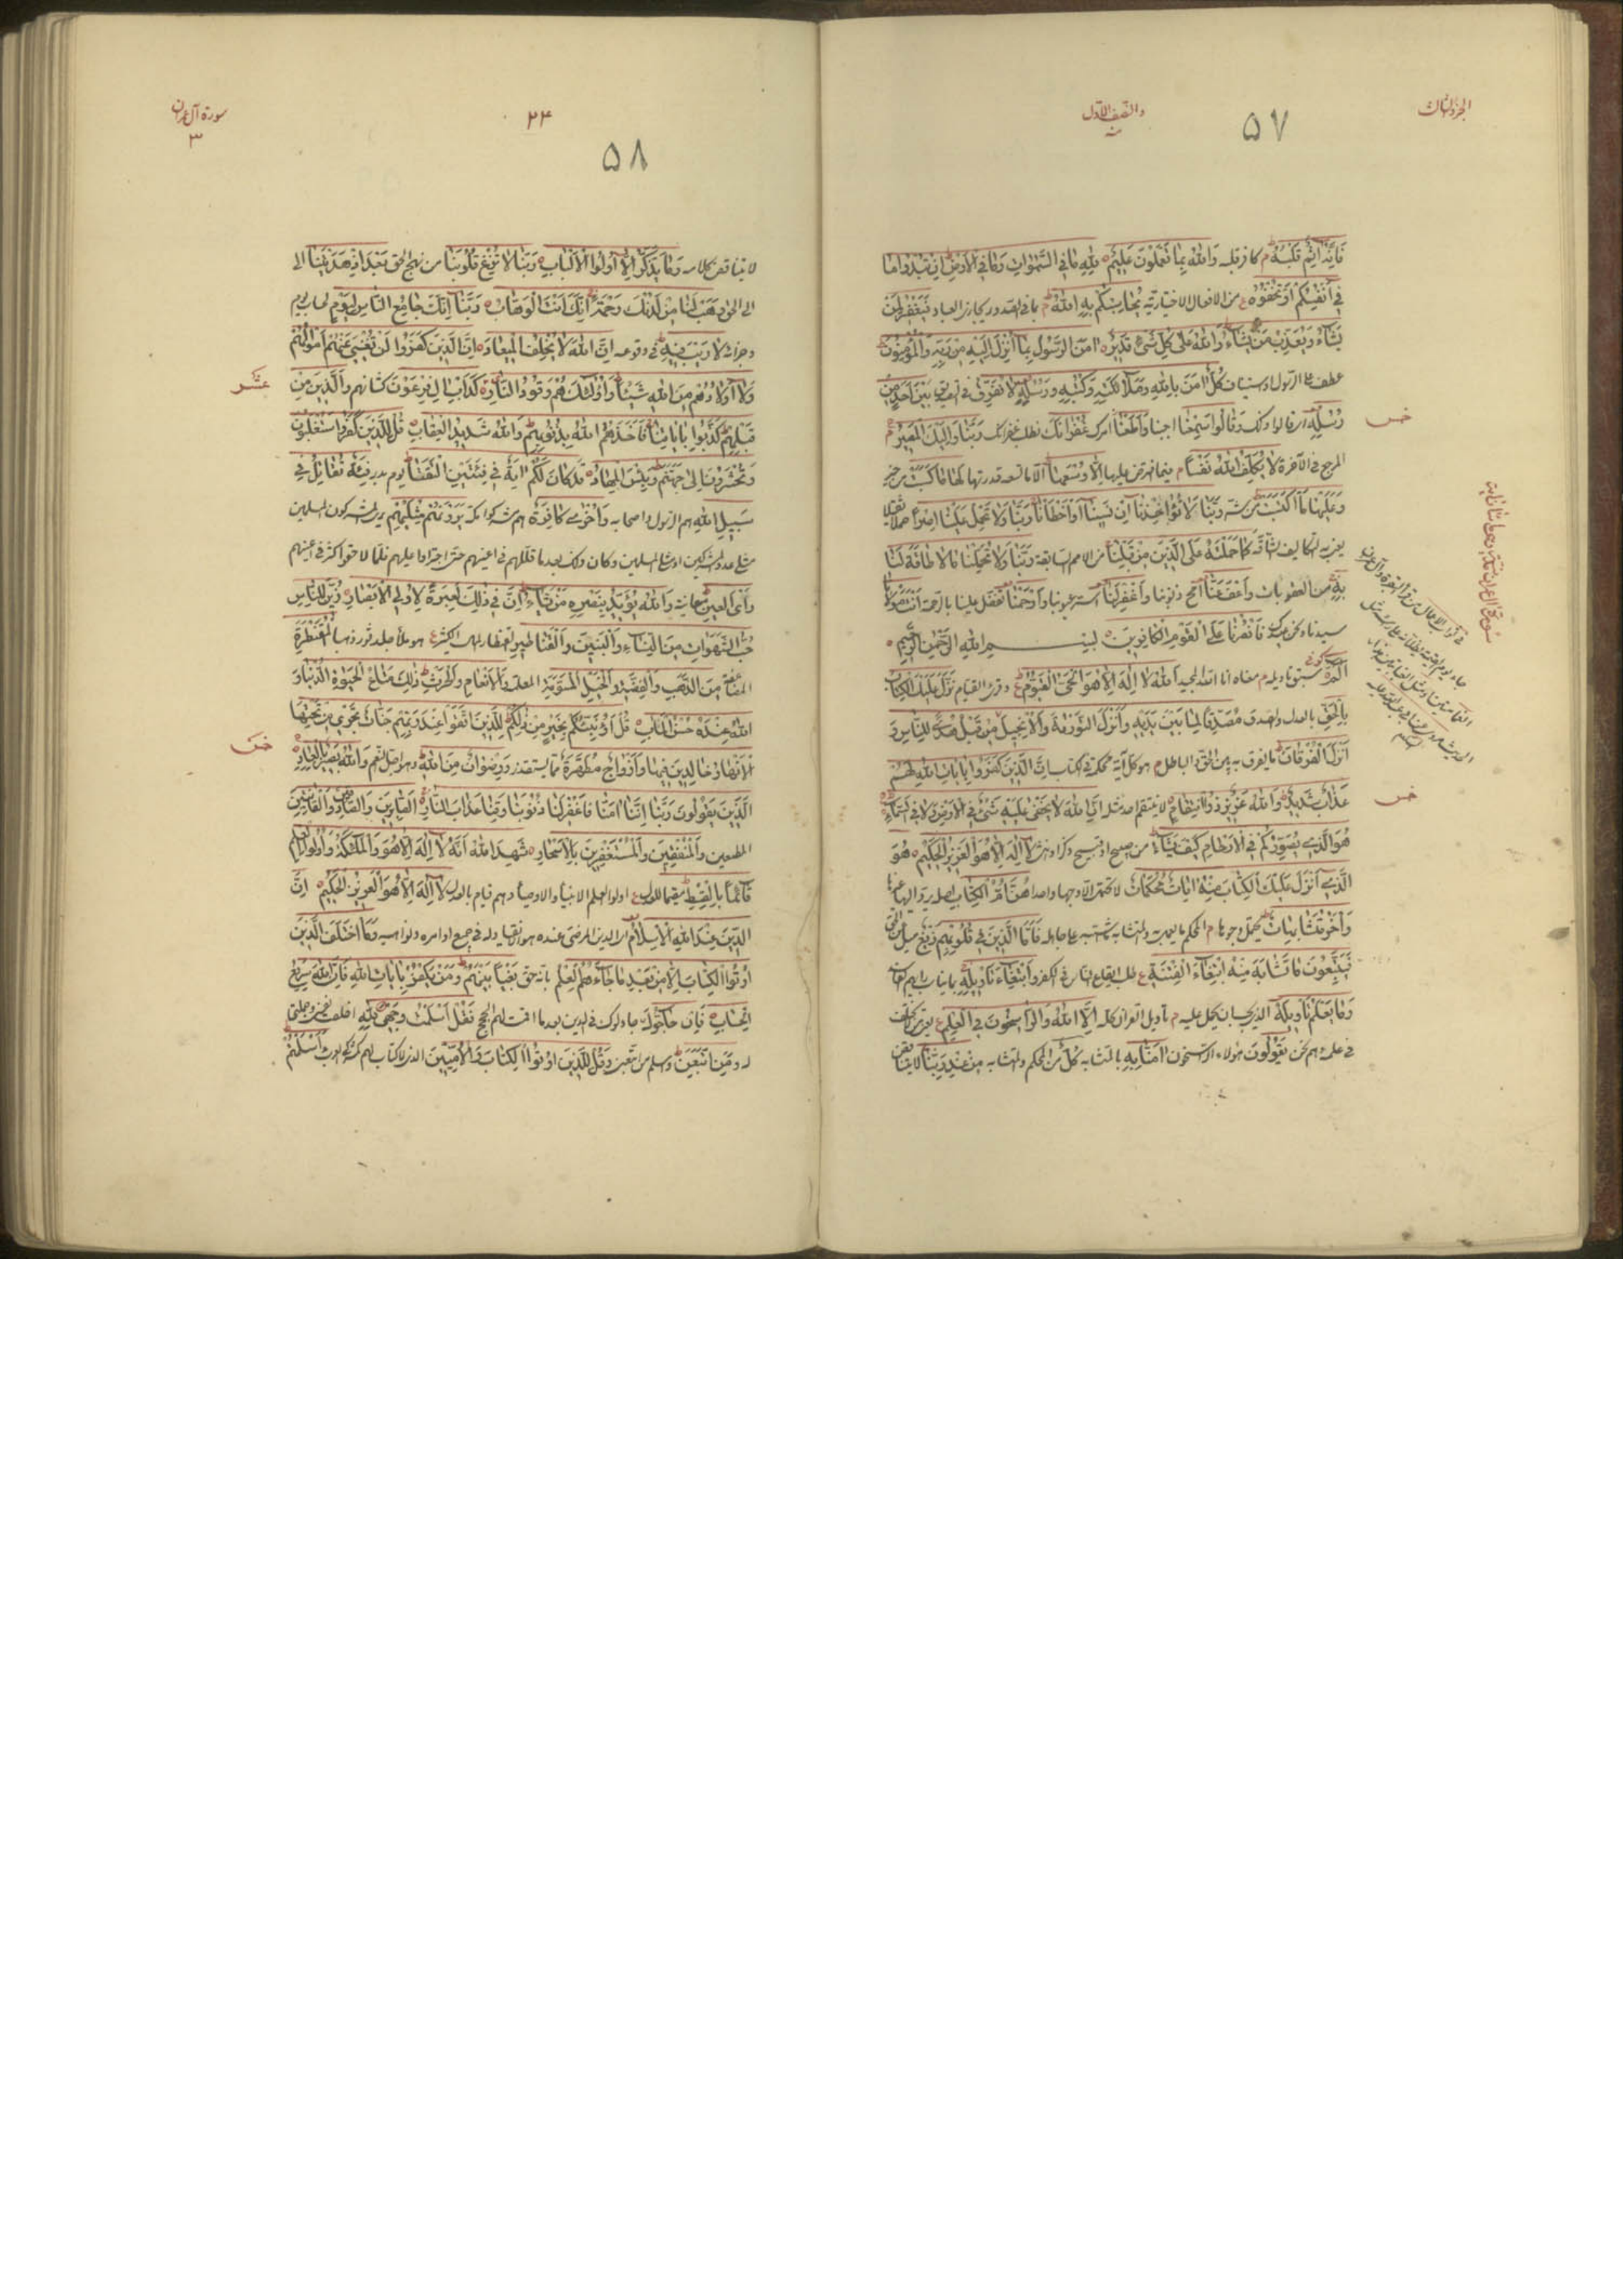 الجزء الثالث
والنصف الأول
۵۷
فَإِنَّهُ اٰثِمٌ قَلْبُهُ كافر قلبه وَاللّٰهُ بِمَا تَعْمَلُونَ عَلِيمٌ لِلّٰهِ مَا فِي السَّمٰوَاتِ وَمَا فِي الْأَرْضِ إِنْ تُبْدُوا مَا
فِي أَنْفُسِكُمْ أَوْ تُخْفُوهُ من الافعال الاختيارية يُحَاسِبْكُمْ بِهِ اللّٰهُ العباد فَيَغْفِرُ لِمَنْ
يَشَاءُ وَيُعَذِّبُ مَنْ يَشَاءُ وَاللّٰهُ عَلَى كُلِّ شَيْءٍ قَدِيرٌ اٰمَنَ الرَّسُولُ بِمَا أُنْزِلَ إِلَيْهِ مِنْ رَبِّهِ وَالْمُؤْمِنُونَ
عطف على الرسول او استيناف كُلٌّ اٰمَنَ بِاللّٰهِ وَمَلَائِكَتِهِ وَكُتُبِهِ وَرُسُلِهِ لَا نُفَرِّقُ بَيْنَ أَحَدٍ مِنْ
خمس
رُسُلِهِ اي قالوا ذلك وَقَالُوا سَمِعْنَا اجبنا وَأَطَعْنَا امرك غُفْرَانَكَ نطلب غفرانك رَبَّنَا وَإِلَيْكَ الْمَصِيرُ
المرجع في الآخرة لَا يُكَلِّفُ اللّٰهُ نَفْسًا فيما افترض عليها إِلَّا وُسْعَهَا الا ما تسعه قدرتها لَهَا مَا كَسَبَتْ من خير
وَعَلَيْهَا مَا اكْتَسَبَتْ من شر رَبَّنَا لَا تُؤَاخِذْنَا إِنْ نَسِينَا أَوْ أَخْطَأْنَا رَبَّنَا وَلَا تَحْمِلْ عَلَيْنَا إِصْرًا حملا ثقيلا
يعني به التكاليف الشاقة كَمَا حَمَلْتَهُ عَلَى الَّذِينَ مِنْ قَبْلِنَا من الامم السابقة رَبَّنَا وَلَا تُحَمِّلْنَا مَا لَا طَاقَةَ لَنَا
بِهِ من العقوبات وَاعْفُ عَنَّا امح ذنوبنا وَاغْفِرْ لَنَا استر عيوبنا وَارْحَمْنَا تفضل علينا بالرحمة أَنْتَ مَوْلَانَا
سيدنا ونحن عبيدك فَانْصُرْنَا عَلَى الْقَوْمِ الْكَافِرِينَ بسم اللّٰه الرحمن الرحيم
الم سبق تأويله معناه انا اللّٰه المجيد اللّٰهُ لَا إِلٰهَ إِلَّا هُوَ الْحَيُّ الْقَيُّومُ وقرئ القيام نَزَّلَ عَلَيْكَ الْكِتَابَ
بِالْحَقِّ بالعدل والصدق مُصَدِّقًا لِمَا بَيْنَ يَدَيْهِ وَأَنْزَلَ التَّوْرٰةَ وَالْإِنْجِيلَ مِنْ قَبْلُ هُدًى لِلنَّاسِ وَ
أَنْزَلَ الْفُرْقَانَ ما يفرق به بين الحق والباطل هو كل آية محكمة في الكتاب إِنَّ الَّذِينَ كَفَرُوا بِاٰيَاتِ اللّٰهِ لَهُمْ
خمس
عَذَابٌ شَدِيدٌ وَاللّٰهُ عَزِيزٌ ذُو انْتِقَامٍ لا ينتقم احد مثله إِنَّ اللّٰهَ لَا يَخْفَى عَلَيْهِ شَيْءٌ فِي الْأَرْضِ وَلَا فِي السَّمَاءِ
هُوَ الَّذِي يُصَوِّرُكُمْ فِي الْأَرْحَامِ كَيْفَ يَشَاءُ من صبيح او قبيح ذكر او انثى لَا إِلٰهَ إِلَّا هُوَ الْعَزِيزُ الْحَكِيمُ هُوَ
الَّذِي أَنْزَلَ عَلَيْكَ الْكِتَابَ مِنْهُ اٰيَاتٌ مُحْكَمَاتٌ لا تحتمل الا وجها واحدا هُنَّ أُمُّ الْكِتَابِ اصله يرد اليها غيرها
وَأُخَرُ مُتَشَابِهَاتٌ تحتمل وجوها المحكم ما يعمل به والمتشابه ما اشتبه على جاهله فَأَمَّا الَّذِينَ فِي قُلُوبِهِمْ زَيْغٌ ميل عن الحق
فَيَتَّبِعُونَ مَا تَشَابَهَ مِنْهُ ابْتِغَاءَ الْفِتْنَةِ الكفر وَابْتِغَاءَ تَأْوِيلِهِ
وَمَا يَعْلَمُ تَأْوِيلَهُ الذي يجب ان يحمل عليه تأويل القرآن كله إِلَّا اللّٰهُ وَالرَّاسِخُونَ فِي الْعِلْمِ
يَقُولُونَ هؤلاء الراسخون اٰمَنَّا بِهِ بالمتشابه كُلٌّ من المحكم والمتشابه مِنْ عِنْدِ رَبِّنَا
سورة آل عمران
في ثواب الاعمال من قرأ البقرة وآل عمران
جاء يوم القيمة تظلانه على رأسه مثل
الغمامتين او مثل الغيابتين
سورة آل عمران
۳
۲۴
۵۸
لا يتناقض كلامه وَمَا يَذَّكَّرُ إِلَّا أُولُوا الْأَلْبَابِ رَبَّنَا لَا تُزِغْ قُلُوبَنَا عن نهج الحق بَعْدَ إِذْ هَدَيْتَنَا الى
الى الحق وَهَبْ لَنَا مِنْ لَدُنْكَ رَحْمَةً إِنَّكَ أَنْتَ الْوَهَّابُ رَبَّنَا إِنَّكَ جَامِعُ النَّاسِ لِيَوْمٍ لحساب يوم
وجزائه لَا رَيْبَ فِيهِ في وقوعه إِنَّ اللّٰهَ لَا يُخْلِفُ الْمِيعَادَ إِنَّ الَّذِينَ كَفَرُوا لَنْ تُغْنِيَ عَنْهُمْ أَمْوَالُهُمْ
عشر
وَلَا أَوْلَادُهُمْ مِنَ اللّٰهِ شَيْئًا وَأُولٰئِكَ هُمْ وَقُودُ النَّارِ كَدَأْبِ اٰلِ فِرْعَوْنَ كشأنهم وَالَّذِينَ مِنْ
قَبْلِهِمْ كَذَّبُوا بِاٰيَاتِنَا فَأَخَذَهُمُ اللّٰهُ بِذُنُوبِهِمْ وَاللّٰهُ شَدِيدُ الْعِقَابِ قُلْ لِلَّذِينَ كَفَرُوا سَتُغْلَبُونَ
وَتُحْشَرُونَ إِلَى جَهَنَّمَ وَبِئْسَ الْمِهَادُ قَدْ كَانَ لَكُمْ اٰيَةٌ فِي فِئَتَيْنِ الْتَقَتَا يوم بدر فِئَةٌ تُقَاتِلُ فِي
سَبِيلِ اللّٰهِ هم الرسول واصحابه وَأُخْرَى كَافِرَةٌ هم مشركوا مكة يَرَوْنَهُمْ مِثْلَيْهِمْ يرى المشركون المسلمين
مثلي عدد المشركين او مثلي المسلمين وكان ذلك بعد ما قللهم في اعينهم حتى اجترءوا عليهم فلما لاقوا كثر في اعينهم
رَأْيَ الْعَيْنِ معاينة وَاللّٰهُ يُؤَيِّدُ بِنَصْرِهِ مَنْ يَشَاءُ إِنَّ فِي ذٰلِكَ لَعِبْرَةً لِأُولِي الْأَبْصَارِ زُيِّنَ لِلنَّاسِ
حُبُّ الشَّهَوَاتِ مِنَ النِّسَاءِ وَالْبَنِينَ وَالْقَنَاطِيرِ القنطار المال الكثير هو ملأ جلد ثور ذهبا الْمُقَنْطَرَةِ
مِنَ الذَّهَبِ وَالْفِضَّةِ وَالْخَيْلِ الْمُسَوَّمَةِ المعلمة وَالْأَنْعَامِ وَالْحَرْثِ ذٰلِكَ مَتَاعُ الْحَيٰوةِ الدُّنْيَا وَ
اللّٰهُ عِنْدَهُ حُسْنُ الْمَاٰبِ قُلْ أَؤُنَبِّئُكُمْ بِخَيْرٍ مِنْ ذٰلِكُمْ لِلَّذِينَ اتَّقَوْا عِنْدَ رَبِّهِمْ جَنَّاتٌ تَجْرِي مِنْ تَحْتِهَا
خمس
الْأَنْهَارُ خَالِدِينَ فِيهَا وَأَزْوَاجٌ مُطَهَّرَةٌ مما يستقذر وَرِضْوَانٌ مِنَ اللّٰهِ وهو اجل النعم وَاللّٰهُ بَصِيرٌ بِالْعِبَادِ
الَّذِينَ يَقُولُونَ رَبَّنَا إِنَّنَا اٰمَنَّا فَاغْفِرْ لَنَا ذُنُوبَنَا وَقِنَا عَذَابَ النَّارِ الصَّابِرِينَ وَالصَّادِقِينَ وَالْقَانِتِينَ
المطيعين وَالْمُنْفِقِينَ وَالْمُسْتَغْفِرِينَ بِالْأَسْحَارِ شَهِدَ اللّٰهُ أَنَّهُ لَا إِلٰهَ إِلَّا هُوَ وَالْمَلٰئِكَةُ وَأُولُوا الْعِلْمِ
قَائِمًا بِالْقِسْطِ مقيما للعدل اولوا العلم الانبياء والاوصياء وهم قيام بالعدل لَا إِلٰهَ إِلَّا هُوَ الْعَزِيزُ الْحَكِيمُ إِنَّ
الدِّينَ عِنْدَ اللّٰهِ الْإِسْلَامُ اي الدين المرضي عنده هو انقياد له في جميع اوامره ونواهيه وَمَا اخْتَلَفَ الَّذِينَ
أُوتُوا الْكِتَابَ إِلَّا مِنْ بَعْدِ مَا جَاءَهُمُ الْعِلْمُ بانه حق بَغْيًا بَيْنَهُمْ وَمَنْ يَكْفُرْ بِاٰيَاتِ اللّٰهِ فَإِنَّ اللّٰهَ سَرِيعُ
الْحِسَابِ فَإِنْ حَاجُّوكَ جادلوك في الدين بعد ما اقمت لهم الحجج فَقُلْ أَسْلَمْتُ وَجْهِيَ لِلّٰهِ اخلصت نفسي وجملتي
له وَمَنِ اتَّبَعَنِ واسلم من اتبعن وَقُلْ لِلَّذِينَ أُوتُوا الْكِتَابَ وَالْأُمِّيِّينَ الذين لا كتاب لهم كمشركي العرب ءَأَسْلَمْتُمْ